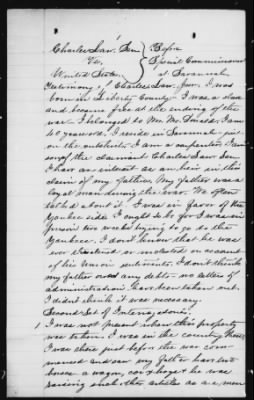 Charles Law, Sen } Before
Vs. } Special Commissioner
United States } at Savannah
Testimony of Charles Law, Jun, I was
born in Liberty County - I was a slave
and became free at the ending of the
war - I belonged to Mr. McDonald. I am
40 years old. I reside in Savannah - just
on the outskirts. I am a carpenter, I am
son of the claimant Charles Law Sen
I have an interest as an heir in this
claim of my father. My father was a
loyal man during the war. We often
talked about it. I was in favor of the
Yankee side. I ought to be for I was in
prison two weeks trying to go to the
Yankees. I don't know that he was
ever threatened or molested on account
of his Union sentiments. I don't think
my father owed any debts - no letters of
administration have been taken out.
I didn't think it was necessary.
Second Set of Interrogatories.
1 I was not present when this property
was taken. I was in the country
I was there just before the war com-
menced and saw my father have two
horses a wagon, cow & hogs he was
raising such other articles as a man